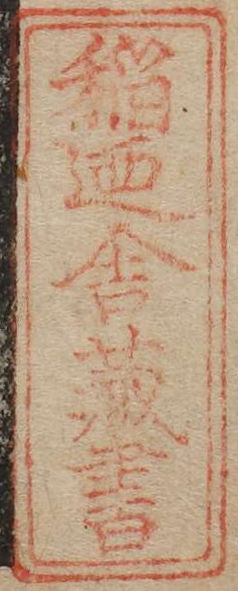 稲迺舎蔵書